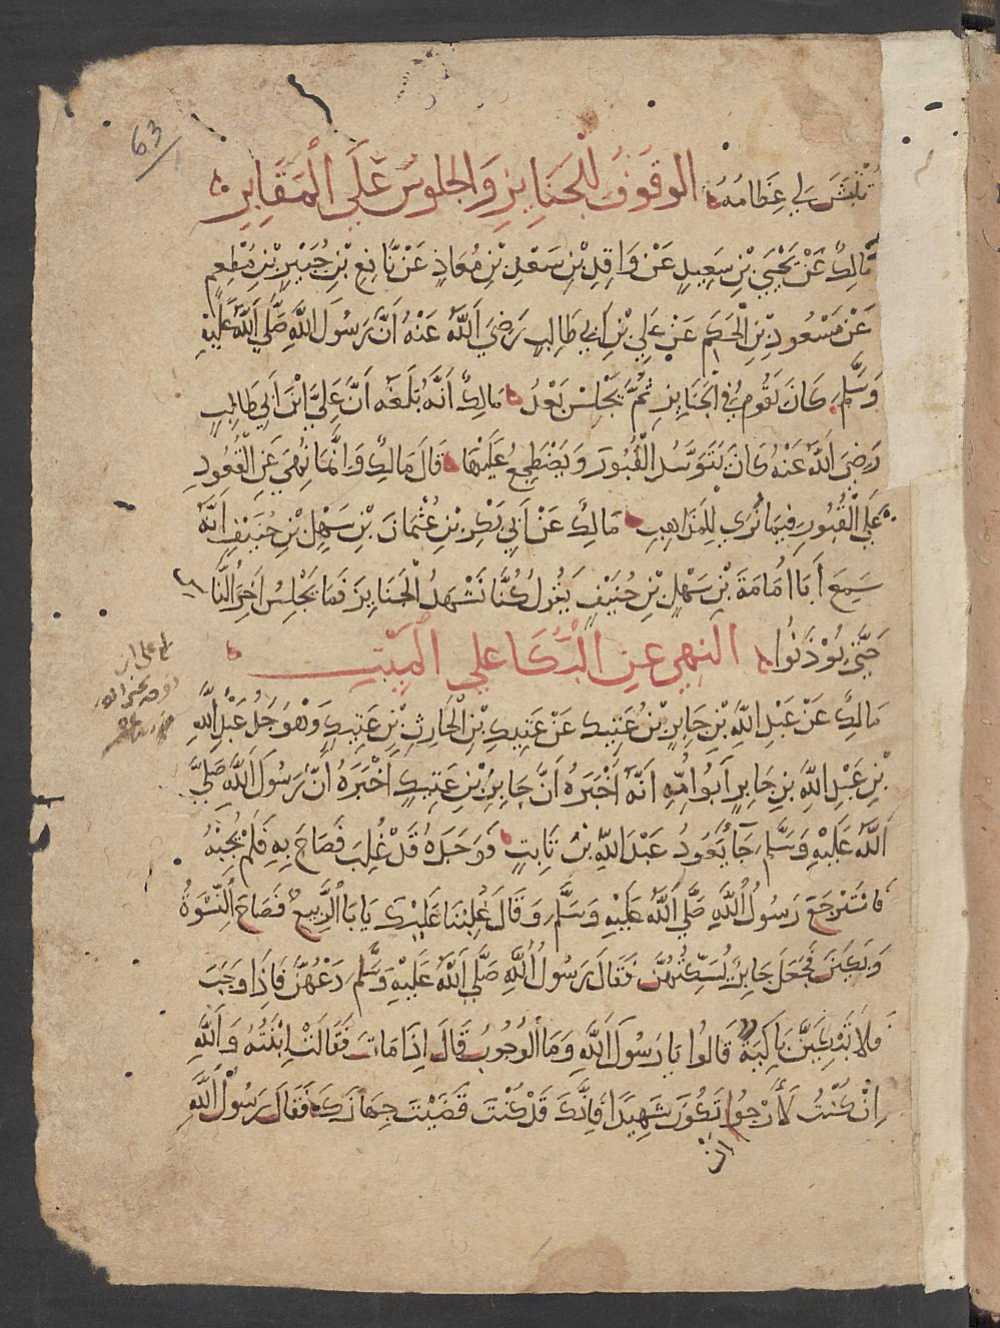 63
تُنْبَشَ لِي عِظَامُهُ الوقوفُ للجنايزِ وَالجلوسُ عَلَى المَقَابِرِ
مَالِكٌ عَنْ يَحْيَي بْنِ سَعِيدٍ عَنْ وَاقِدِ بْنِ سَعْدِ بْنِ مُعَاذٍ عَنْ نَافِعِ بْنِ جُبَيْرِ بْنِ مُطْعِمٍ
عَنْ مَسْعُودِ بْنِ الْحَكَمِ عَنْ عَلِي بْنِ اَبِي طَالِبٍ رَضِيَ اَللَّهُ عَنْهُ اَنَّ رَسُولَ اللَّهِ صَلَّي اَللَّهُ عَلَيْهِ
وَسَلَّمَ كَانَ يَقُومُ فِي الْجَنَايِزِ ثُمَّ يَجْلِسُ بَعْدُ مَالِكٌ اَنَّهُ بَلَغَهُ اَنَّ عَلِيَّ ابْنَ اَبِي طَالِبٍ
رَضِيَ اَللَّهُ عَنْهُ كَانَ يَتَوَسَّدُ الْقُبُورَ وَيَضْطَجِعُ عَلَيْهَا قَالَ مَالِكٌ وَاِنَّمَا نُهِيَ عَنِ الْقُعُودِ
عَلَي الْقُبُورِ فِيمَا نُرَي لِلْمَذَاهِبِ مَالِكٌ عَنْ اَبِي بَكْرِ بْنِ عُثْمَانَ بْنِ سَهْلِ بْنِ حُنَيْفٍ اَنَّهُ
سَمِعَ اَبَا اُمَامَةَ بْنِ سَهْلِ بْنِ حُنَيْفٍ يَقُولُ كُنَّا نَشْهَدُ الْجَنَايِزَ فَمَا يَجْلِسُ اَخِرُ النَّاسِ
حَتَّي يُوْذَنُوا النهي عن البُكَا علي المَيِّتِ
مَالِكٌ عَنْ عَبْدِ اللَّهِ بْنِ جَابِرِ بْنِ عَتِيكٍ عَنْ عَتِيكِ بْنِ الْحَارِثِ بْنِ عَتِيكٍ وَهْوَ جَدُّ عَبْدِ اللَّهِ
بْنِ عَبْدِ اللَّهِ بْنِ جَابِرٍ اَبُو اُمِّهِ اَنَّهُ اَخْبَرَهُ اَنَّ جَابِرَ بْنَ عَتِيكٍ اَخْبَرَهُ اَنَّ رَسُولَ اَللَّهِ صَلَّي
اَللَّهُ عَلَيْهِ وَسَلَّمَ جَآءَ يَعُودُ عَبْدَ اللَّهِ بْنَ ثَابِتٍ فَوَجَدَهُ قَدْ غُلِبَ فَصَاحَ بِهِ فَلَمْ يُجِبْهُ
فَاسْتَرْجَعَ رَسُولُ اَللَّهِ صَلَّي اَللَّهُ عَلَيْهِ وَسَلَّمَ وَقَالَ غُلِبْنَا عَلَيْكَ يَا بَا اَلرَّبِيعِ فَصَاحَ اَلنِّسْوَةُ
وَبَكَيْنَ فَجَعَلَ جَابِرٌ يُسَكِّتُهُنَّ فَقَالَ رَسُولُ اَللَّهِ صَلَّي اَللَّهُ عَلَيْهِ وَسَلَّمَ دَعْهُنَّ فَاِذَا وَجَبَ
فَلَا تَبْكِيَنَّ بَاكِيَةٌ قَالُوا يَا رَسُولَ اَللَّهِ وَمَا اَلْوُجُوبُ قَالَ اِذَا مَاتَ فَقَالَتْ اِبْنَتُهُ وَاَللَّهِ
اِنْ كُنْتُ لَأَرْجُوا تَكُونَ شَهِيدًا فَاِنَّكَ قَدْ كُنْتَ قَضَيْتَ جِهَازَكَ فَقَالَ رَسُولُ اَللَّهِ
ان